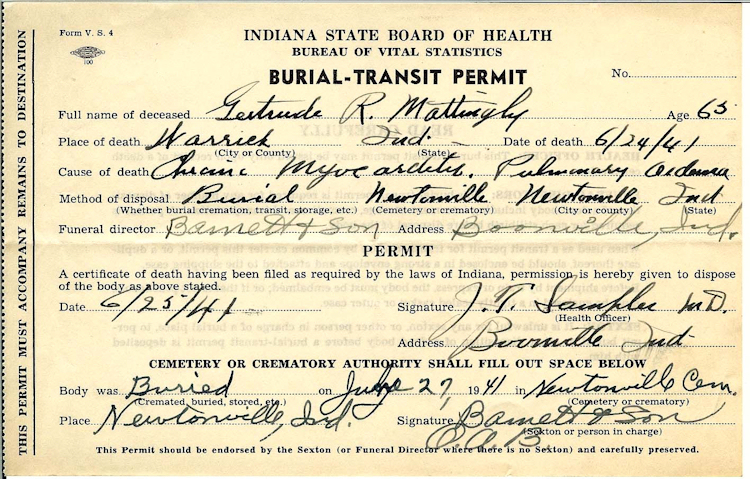 Form V. S. 4
INDIANA STATE BOARD OF HEALTH
BUREAU OF VITAL STATISTICS
100
BURIAL-TRANSIT PERMIT
No.
Full name of deceased Gertrude R. Mattingly Age 65
Place of death Warrick Ind. Date of death 6/24/41
(City or County) (State)
Cause of death Chronic Myocarditis. Pulmonary Oedema
Method of disposal Burial Newtonville Newtonville Ind
(Whether burial cremation, transit, storage, etc.) (Cemetery or crematory) (City or county) (State)
Funeral director Barnett & Son Address Boonville, Ind.
PERMIT
A certificate of death having been filed as required by the laws of Indiana, permission is hereby given to dispose
of the body as above stated.
Date 6/25/41 Signature J. T. Samples M.D.
(Health Officer)
Address Boonville Ind
CEMETERY OR CREMATORY AUTHORITY SHALL FILL OUT SPACE BELOW
Body was Buried on 27, 1941 in Newtonville Cem.
(Cremated, buried, stored, etc.) (Cemetery or crematory)
Place Newtonville, Ind. Signature Barnett & Son
(Sexton or person in charge)
This Permit should be endorsed by the Sexton (or Funeral Director where there is no Sexton) and carefully preserved.
THIS PERMIT MUST ACCOMPANY REMAINS TO DESTINATION